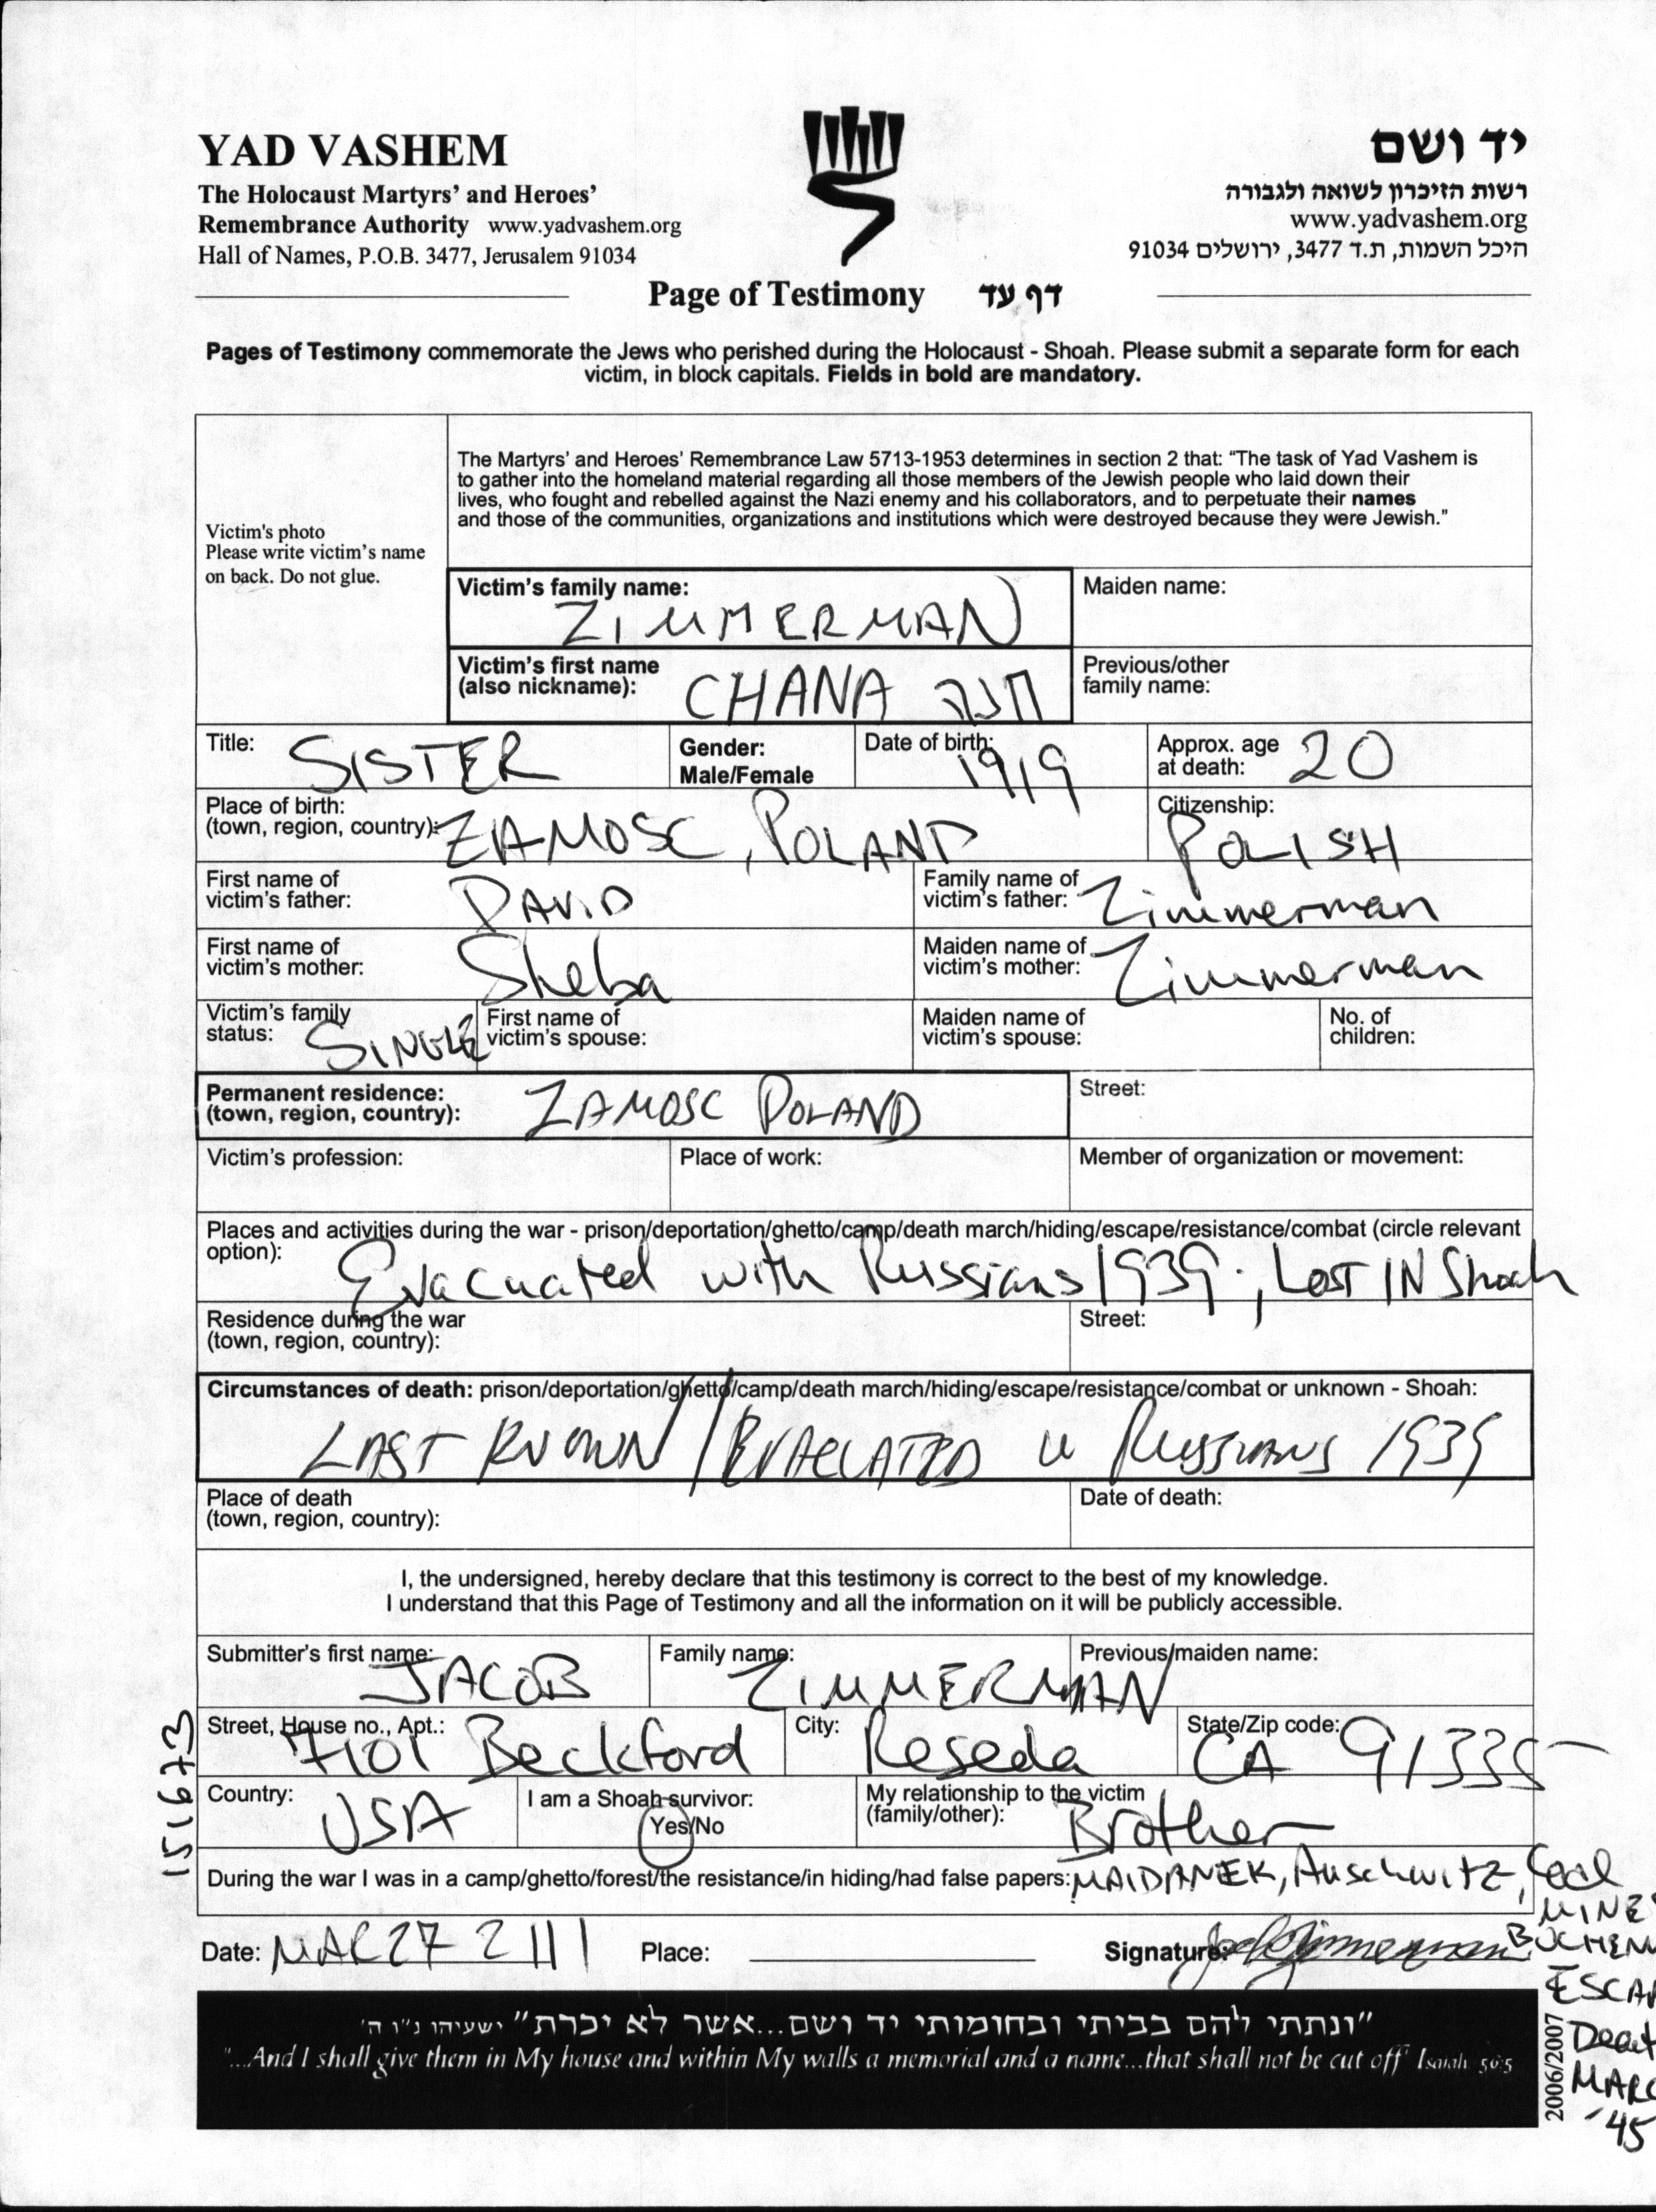 YAD VASHEM
The Holocaust Martyrs' and Heroes'
Remembrance Authority www.yadvashem.org
Hall of Names, P.O.B. 3477, Jerusalem 91034
יד ושם
רשות הזיכרון לשואה ולגבורה
www.yadvashem.org
היכל השמות, ת.ד 3477, ירושלים 91034
Page of Testimony דף עד
Pages of Testimony commemorate the Jews who perished during the Holocaust - Shoah. Please submit a separate form for each
victim, in block capitals. Fields in bold are mandatory.
Victim's photo
Please write victim's name
on back. Do not glue.
The Martyrs' and Heroes' Remembrance Law 5713-1953 determines in section 2 that: "The task of Yad Vashem is
to gather into the homeland material regarding all those members of the Jewish people who laid down their
lives, who fought and rebelled against the Nazi enemy and his collaborators, and to perpetuate their names
and those of the communities, organizations and institutions which were destroyed because they were Jewish."
Victim's family name: ZIMMERMAN
Maiden name:
Victim's first name
(also nickname): CHANA חנה
Previous/other
family name:
Title: SISTER
Gender:
Male/Female
Date of birth: 1919
Approx. age
at death: 20
Place of birth:
(town, region, country): ZAMOSC, POLAND
Citizenship: POLISH
First name of
victim's father: DAVID
Family name of
victim's father: Zimmerman
First name of
victim's mother: Sheba
Maiden name of
victim's mother: Zimmerman
Victim's family
status: SINGLE
First name of
victim's spouse:
Maiden name of
victim's spouse:
No. of
children:
Permanent residence:
(town, region, country): ZAMOSC POLAND
Street:
Victim's profession:
Place of work:
Member of organization or movement:
Places and activities during the war - prison/deportation/ghetto/camp/death march/hiding/escape/resistance/combat (circle relevant
option): Evacuated with Russians 1939; Lost IN Shoah
Residence during the war
(town, region, country):
Street:
Circumstances of death: prison/deportation/ghetto/camp/death march/hiding/escape/resistance/combat or unknown - Shoah:
LAST KNOWN / EVACUATED W RUSSIANS 1939
Place of death
(town, region, country):
Date of death:
I, the undersigned, hereby declare that this testimony is correct to the best of my knowledge.
I understand that this Page of Testimony and all the information on it will be publicly accessible.
Submitter's first name: JACOB
Family name: ZIMMERMAN
Previous/maiden name:
Street, House no., Apt.: 7101 Beckford
City: Reseda
State/Zip code: CA 91335
Country: USA
I am a Shoah survivor:
Yes/No
My relationship to the victim
(family/other): Brother
During the war I was in a camp/ghetto/forest/the resistance/in hiding/had false papers: MAIDANEK, Auschwitz, Coal
MINES
BUCHENW
ESCAP
Death
MARC
'45
Date: MAR 27 2111
Place:
Signature: Jacob Zimmerman
151673
"ונתתי להם בביתי ובחומותי יד ושם...אשר לא יכרת" ישעיהו נ"ו ה'
"...And I shall give them in My house and within My walls a memorial and a name...that shall not be cut off" Isaiah 56:5
2006/2007